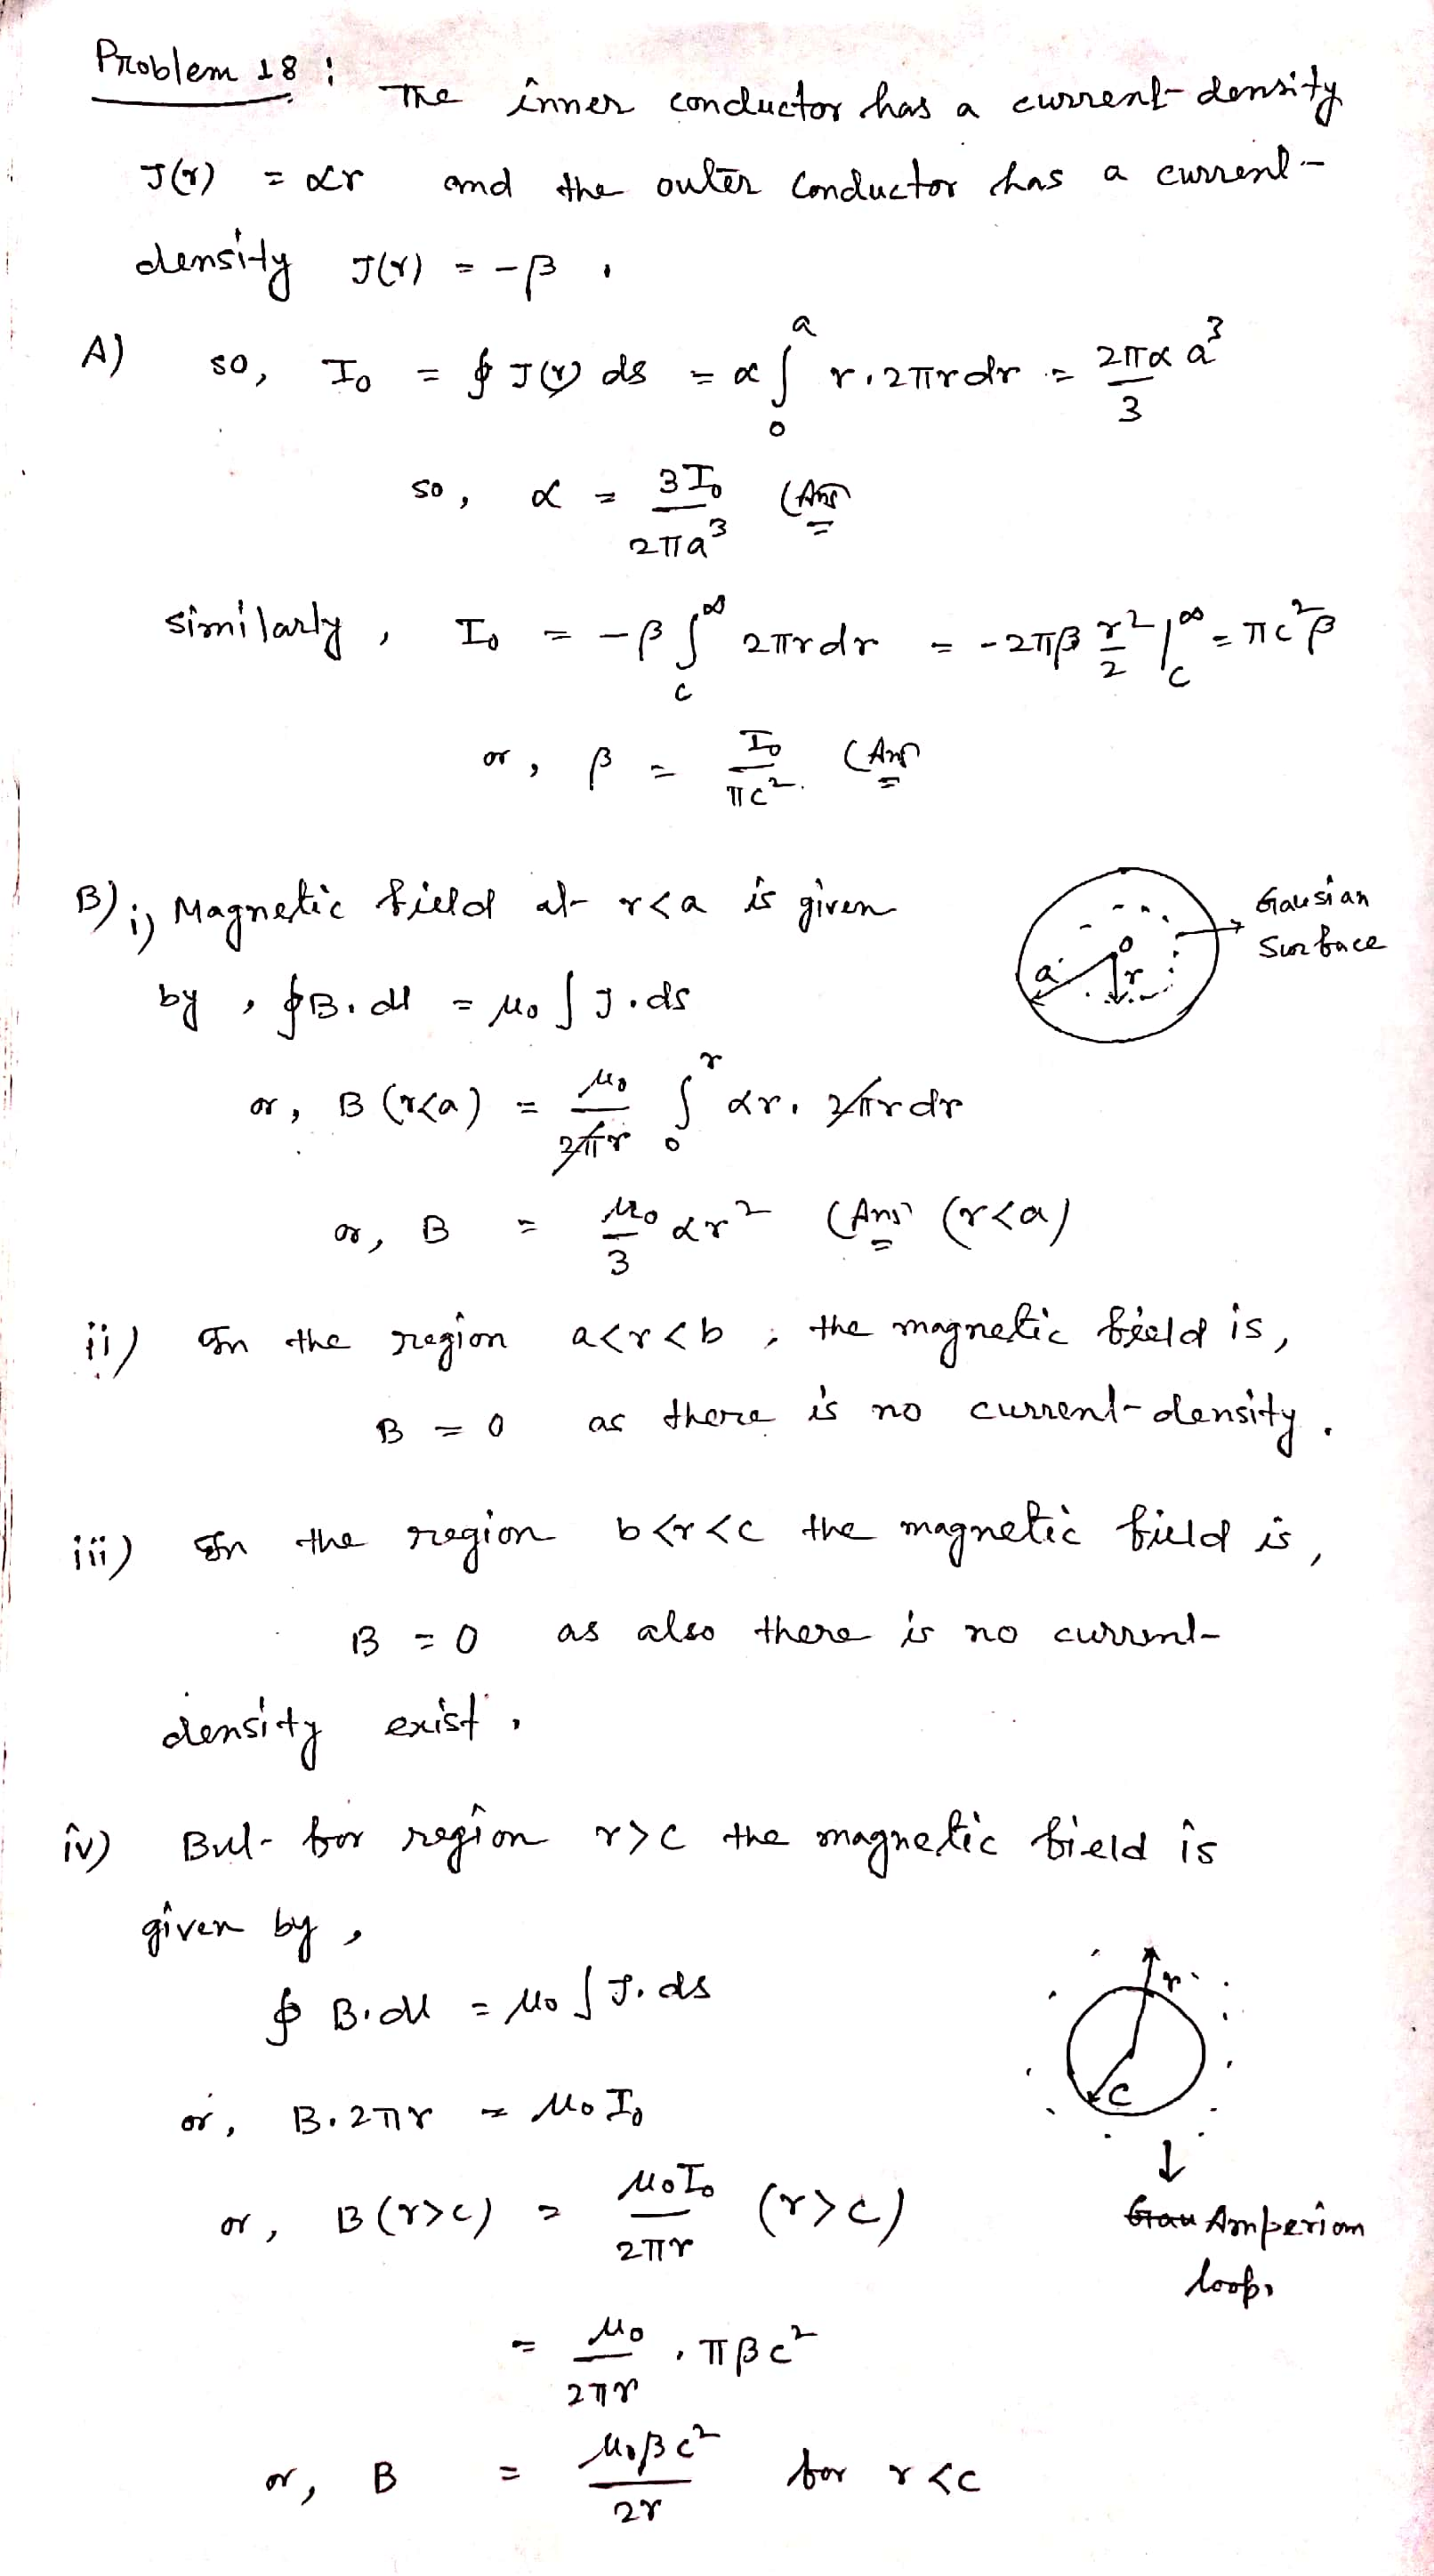 Problem 18 :
The inner conductor has a current-density
J(r) = αr and the outer conductor has a current-
density J(r) = -β .
A) so, I₀ = ∮ J(r) ds = α ∫₀ᵃ r.2πr dr = 2πα a³/3
so, α = 3I₀/2πa³ (Ans)
similarly, I₀ = -β ∫_c^∞ 2πr dr = -2πβ r²/2 |_c^∞ = πc²β
or, β = I₀/πc². (Ans)
B) i) Magnetic field at r<a is given
by, ∮B.dl = μ₀ ∫ J.ds
Gausian
Surface
a
o
r
or, B (r<a) = μ₀/2πr ∫₀ʳ αr. 2πr dr
or, B = μ₀/3 αr² (Ans) (r<a)
ii) In the region a<r<b , the magnetic field is,
B = 0 as there is no current-density.
iii) In the region b<r<c the magnetic field is,
B = 0 as also there is no current-
density exist.
iv) But for region r>c the magnetic field is
given by,
∮ B.dl = μ₀ ∫ J.ds
r
c
or, B.2πr = μ₀ I₀
or, B (r>c) = μ₀I₀/2πr (r>c)
Gau Amperian
loop.
= μ₀/2πr . πβc²
or, B = μ₀βc²/2r for r<c